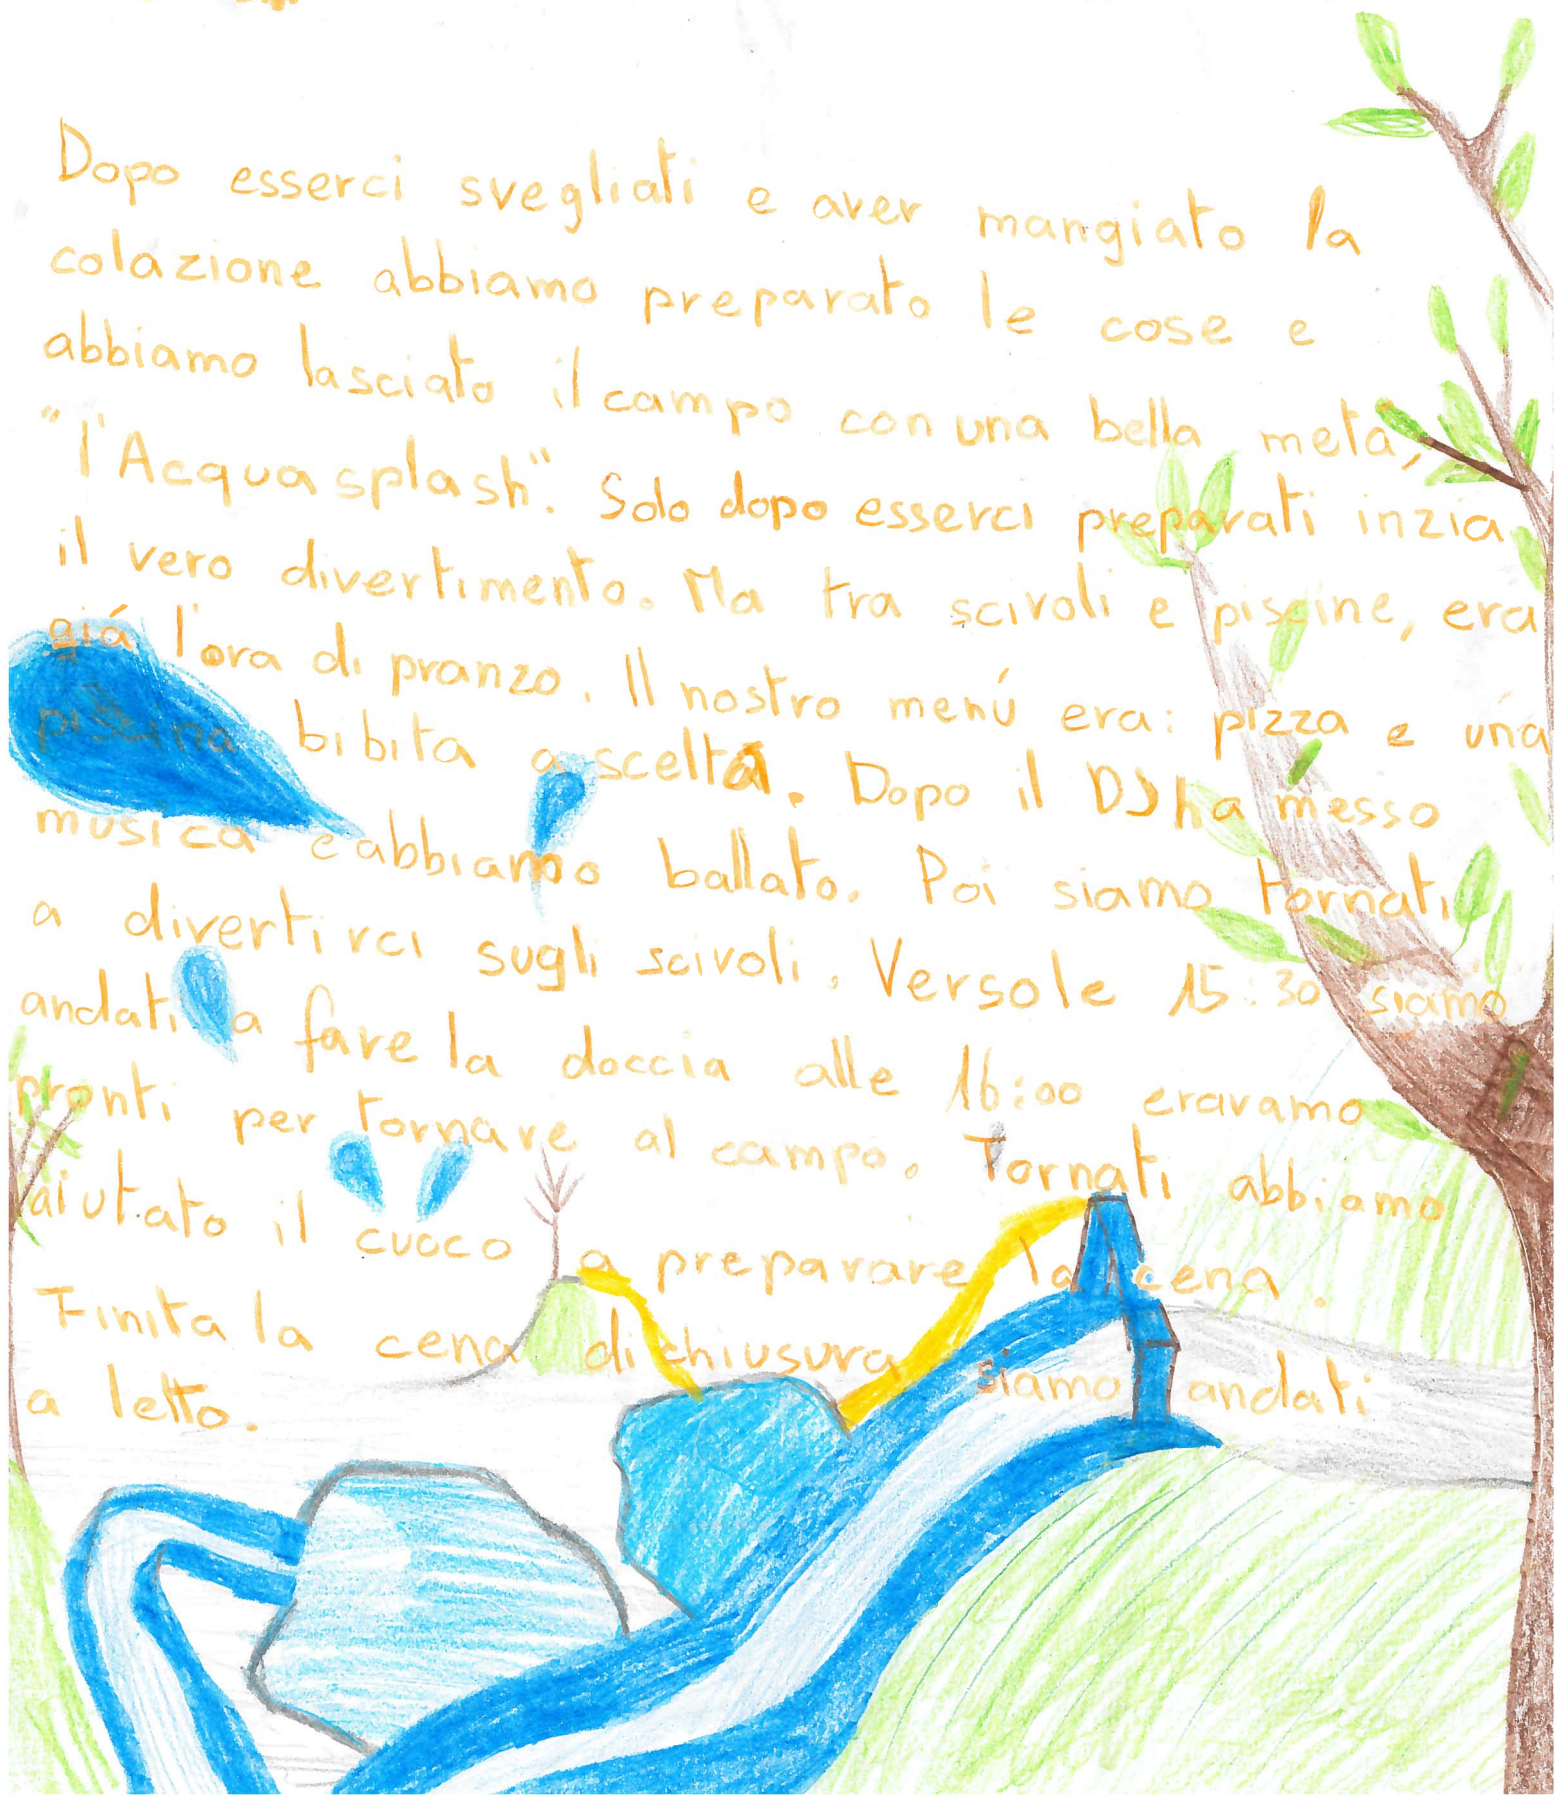 Dopo esserci svegliati e aver mangiato la
colazione abbiamo preparato le cose e
abbiamo lasciato il campo con una bella metá,
"l'Acquasplash". Solo dopo esserci preparati inzia
il vero divertimento. Ma tra scivoli e piscine, era
giá l'ora di pranzo. Il nostro menú era: pizza e una
piscina bibita a scelta. Dopo il DJ ha messo
musica e abbiamo ballato. Poi siamo tornati
a divertirci sugli scivoli. Verso le 15:30 siamo
andati a fare la doccia alle 16:00 eravamo
pronti per tornare al campo. Tornati abbiamo
aiutato il cuoco a preparare la cena.
Finita la cena di chiusura siamo andati
a letto.